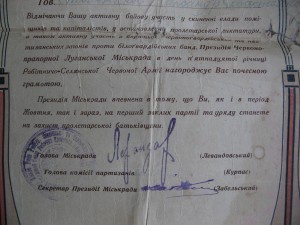 Тов.
Відмічаючи Вашу активну бойову участь у скинені влади поміщиків та капіталістів, у встановленні пролетарської диктатури,
а також активну участь в боротьбі
талановських загонів проти білогвардійських банд, Президія Червонопрапорної Луганської Міськради в день п'ятнадцятої річниці
Робітничо-Селянської Червоної Армії нагороджує Вас почесною
грамотою.
Президія Міськради впевнена в тому, що Ви, як і в період
Жовтня, так і зараз, на перший заклик партії та уряду станете
на захист пролетарської батьківщини.
Голова Міськради (Левандовський)
Голова комісії партизанів (Курпас)
Секретар Президії Міськради (Забельський)